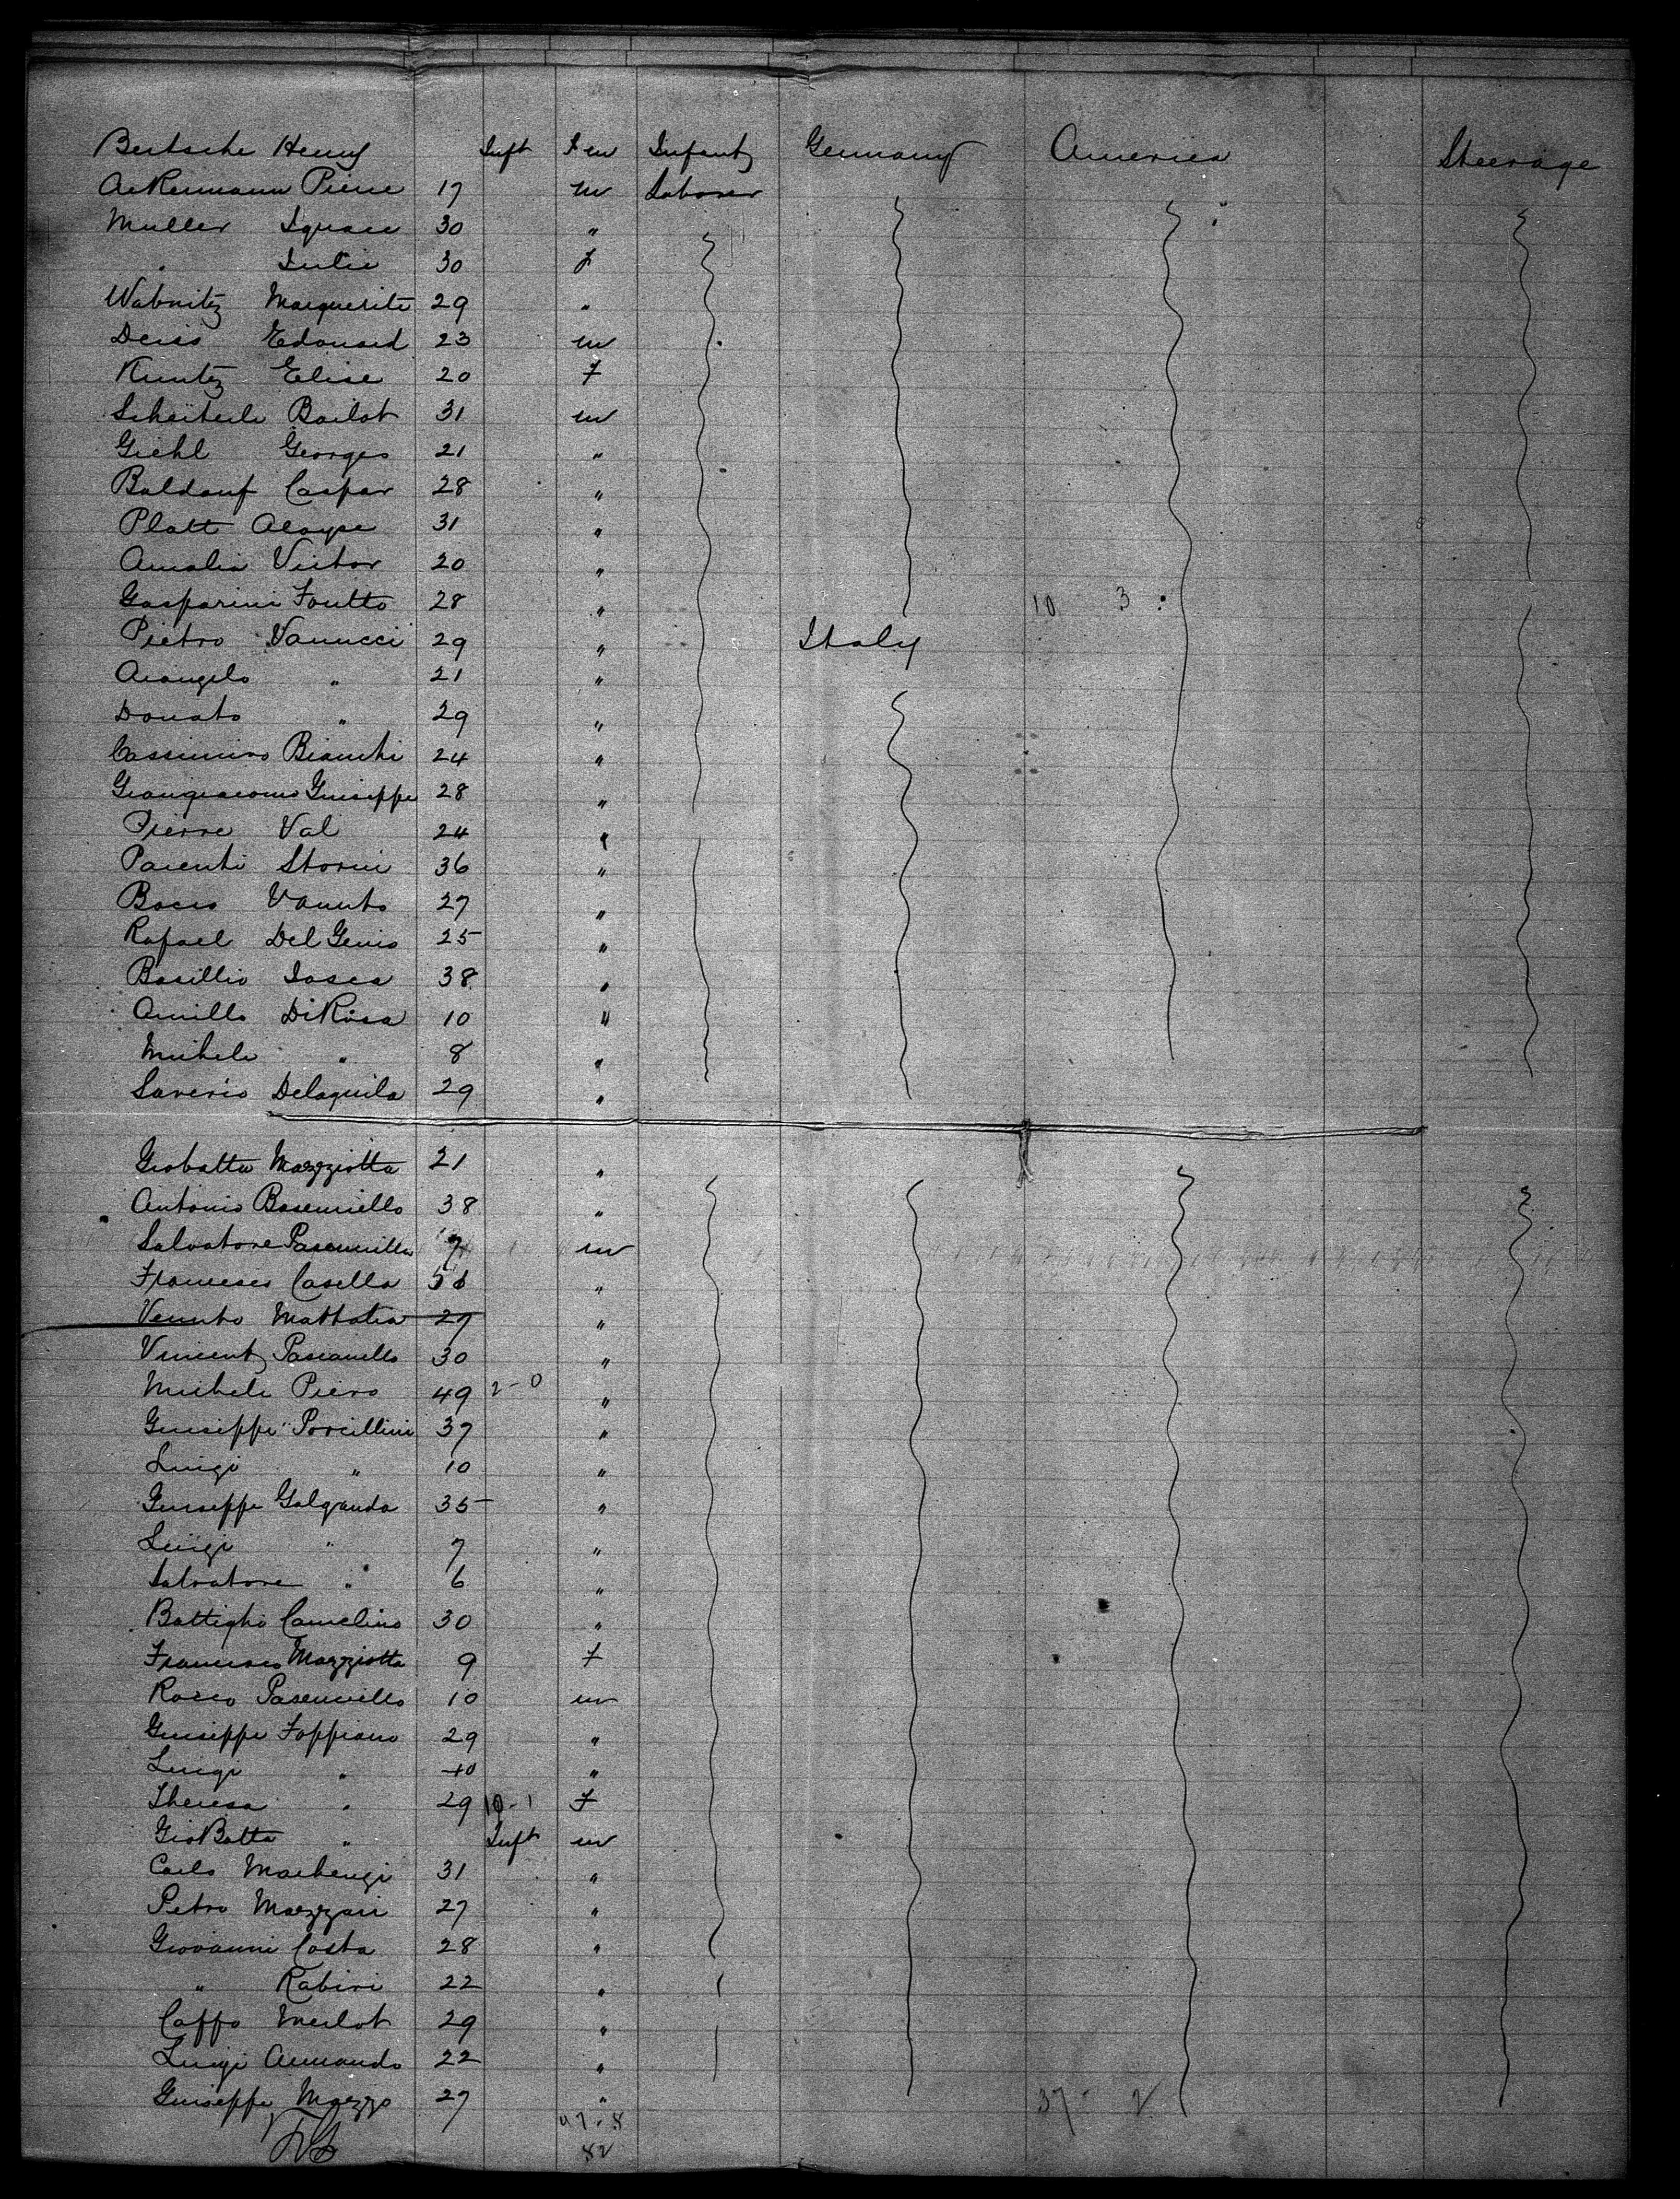 Bertsche Henry Inft m Infant Germany America Steerage
Ackermann Pierre 17 m Laborer
Muller Ignace 30 "
" Julie 30 f
Wabnitz Marguerite 29 "
Deiss Edouard 23 m
Kuntz Elise 20 F
31 m
Giehl Georges 21 "
Baldauf Caspar 28 "
Platt Aloyse 31 "
Amalia Victor 20 "
Gasparini 28 " 10 3
Pietro Vanucci 29 " Italy
Arcangelo " 21 "
Donato " 29 "
Cassimiro Bianchi 24 "
Giangiacomo Guiseppe 28 "
Pierre Val 24 "
Parenti Storni 36 "
27 "
Rafael Del Genio 25 "
Basillio 38 "
DiRosa 10 "
Michele " 8 "
Saverio Delaquila 29 "
Giobatta Mazziotta 21 "
Antonio 38 "
Salvatore 7 m
Francesco Casella "
Mattatia 27 "
Vincent 30 "
Michele Piero 49 2-0 "
Guiseppe Porcillini 37 "
Luigi " 10 "
Guiseppe Galganda 35 "
Luigi " 7 "
Salvatore " 6 "
Camelino 30 "
Francesco Mazziotta 9 F
Rocco 10 m
Guiseppe Foppiano 29 "
Luigi " 40 "
Theresa " 29 10-1 F
GioBatta " Inft m
Carlo 31 "
Petro Mazzari 27 "
Giovanni Costa 28 "
" Rabini 22 "
Caffo Merlot 29 "
Luigi Armando 22 "
Guiseppe Mazzo 27 " 37 - 2
82